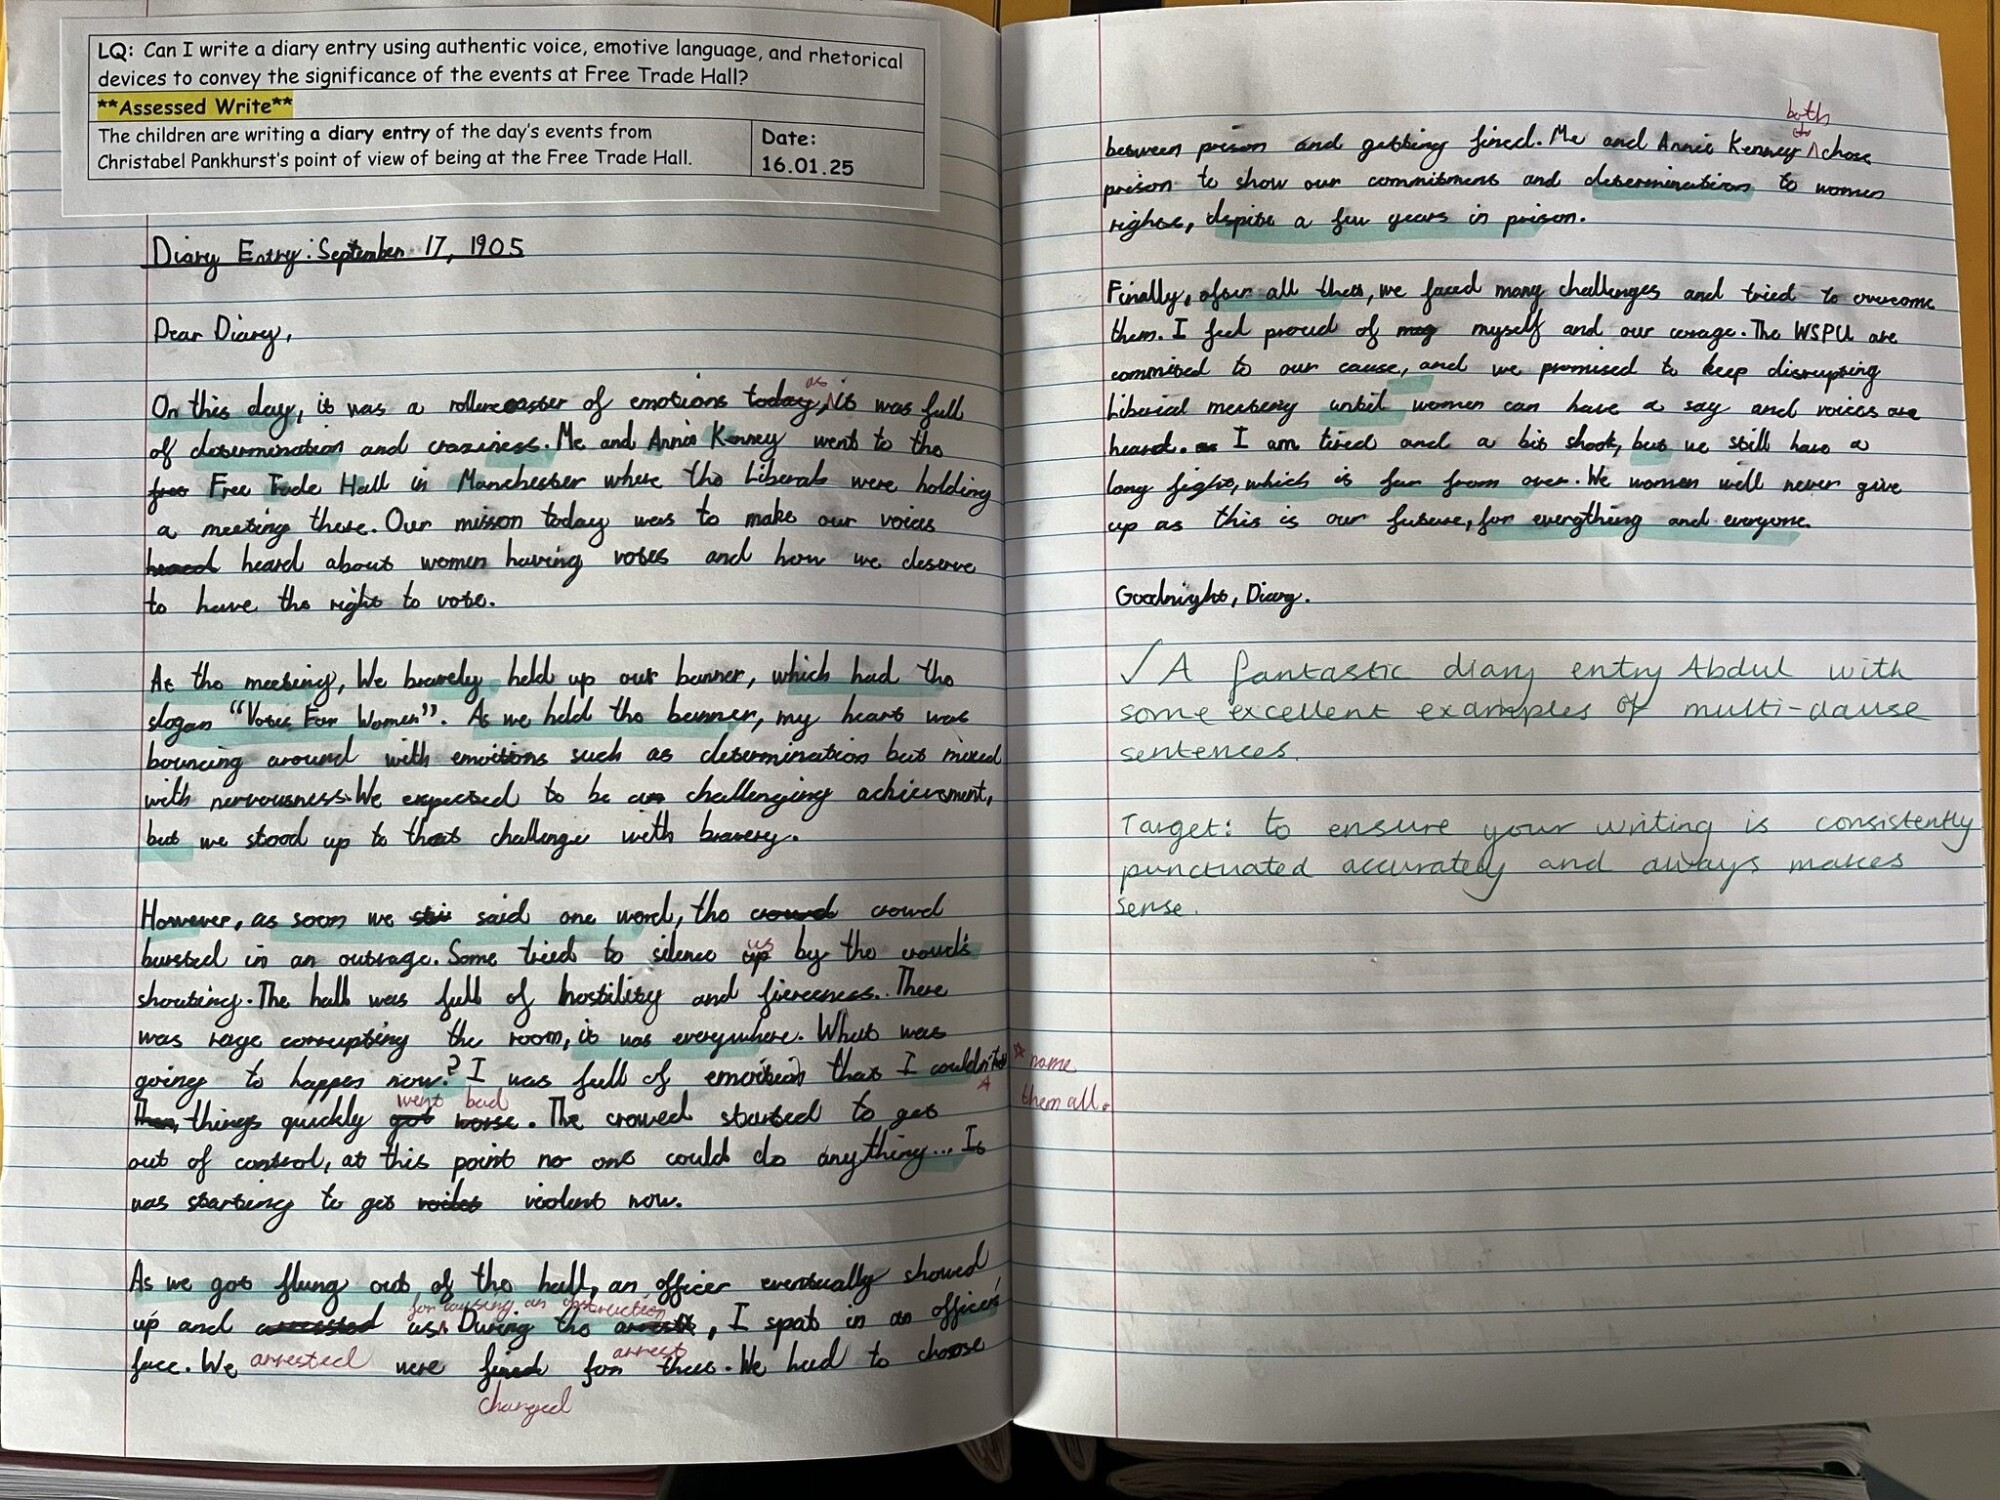 LQ: Can I write a diary entry using authentic voice, emotive language, and rhetorical
devices to convey the significance of the events at Free Trade Hall?
**Assessed Write**
The children are writing a diary entry of the day's events from
Christabel Pankhurst's point of view of being at the Free Trade Hall.
Date:
16.01.25
Diary Entry: September 17, 1905
Dear Diary,
as
On this day, it was a rollercoaster of emotions today, it was full
of determination and craziness. Me and Annie Kenney went to the
free Free Trade Hall in Manchester where the Liberals were holding
a meeting there. Our misson today was to make our voices
heard about women having votes and how we deserve
to have the right to vote.
At the meeting, We bravely held up our banner, which had the
slogan "Votes For Women". As we held the banner, my heart was
bouncing around with emotions such as determination but mixed
with nervousness. We expected to be an challenging achievement,
but we stood up to that challenge with bravery.
However, as soon we said one word, the crowd crowd
bursted in an outrage. Some tried to silence up by the crowd's
us
shouting. The hall was full of hostility and fierceness. There
was rage corrupting the room, it was everywhere. What was
going to happen now? I was full of emotion that I couldn't
name
them all.
went bad
Then, things quickly got worse. The crowed started to get
out of control, at this point no one could do anything... It
was starting to get violent now.
As we got flung out of the hall, an officer eventually showed
for causing an obstruction
up and arrested us. During the arrest, I spat in an officers'
arrested arrest
face. We were fined for thes. We had to choose
charged
both
between prison and getting fined. Me and Annie Kenney chose
prison to show our commitment and determination to women
rights, despite a few years in prison.
Finally, after all thes, we faced many challenges and tried to overcome
them. I feel proud of myself and our corage. The WSPU are
commited to our cause, and we promised to keep disrupting
Liberial meeting until women can have a say and voices are
heard. I am tired and a bit shook, but we still have a
long fight, which is far from over. We women will never give
up as this is our future, for everything and everyone.
Goodnight, Diary.
✓ A fantastic diary entry Abdul with
some excellent examples of multi-clause
sentences.
Target: to ensure your writing is consistently
punctuated accurately and always makes
sense.